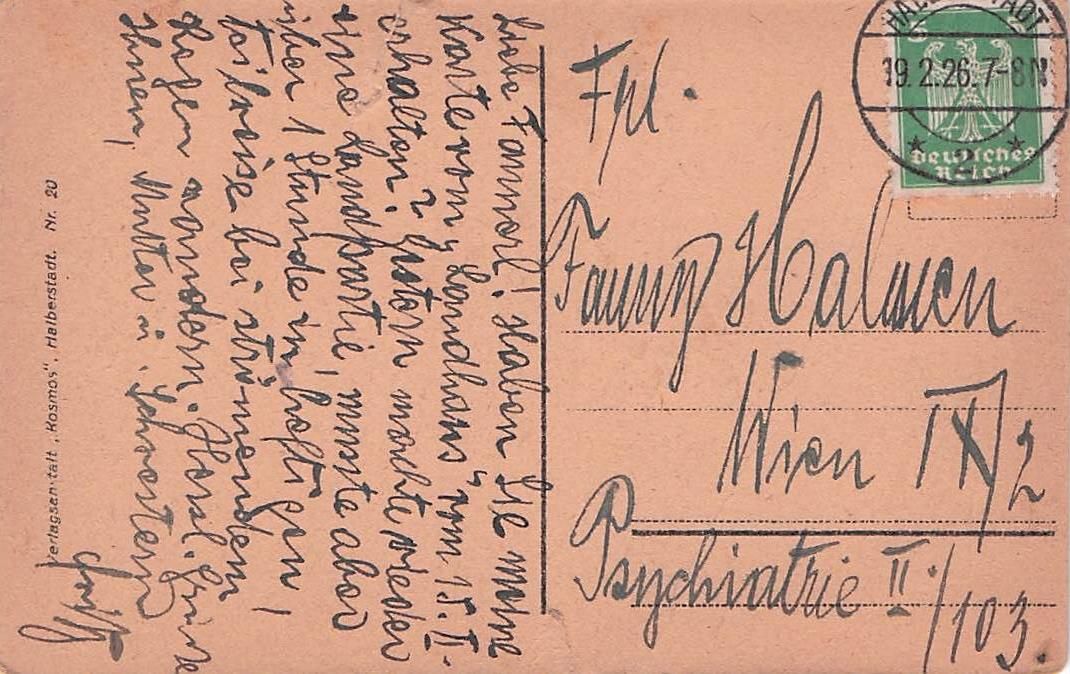 Liebe Fannerl! Haben Sie meine
Karte vom „Landhaus“ vom 15. II.
erhalten? Gestern machte wieder
eine Landpartie, musste aber
über 1 Stunde im heftigen,
teilweise bei strömendem
Regen wandern. Herzl. Grüsse
Ihnen, Mutter u. Schwestern
Frl.
Fanny Halmen
Wien IX/2
Psychiatrie II./103.
HALBERSTADT
19.2.26. 7-8 N
* 2 *
Deutsches
Reich
Verlagsanstalt „Kosmos“, Halberstadt. Nr. 20